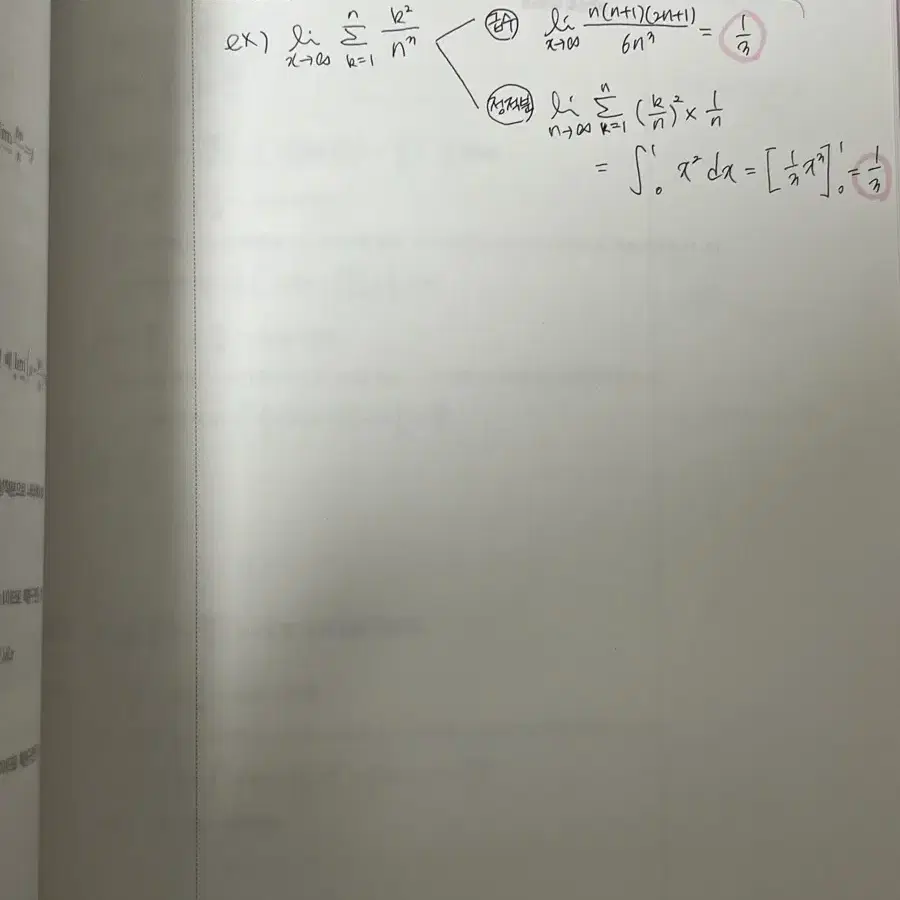 ex) lim x→∞ Σ k=1 n k²/n³
급수 lim x→∞ n(n+1)(2n+1)/6n³ = 1/3
정적분 lim n→∞ Σ k=1 n (k/n)² × 1/n
= ∫₀¹ x² dx = [1/3 x³]₀¹ = 1/3